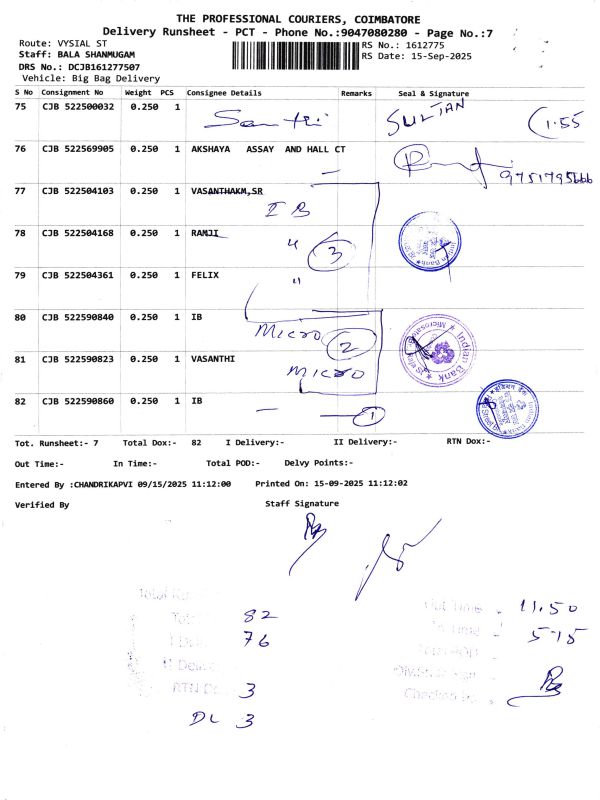 THE PROFESSIONAL COURIERS, COIMBATORE
Delivery Runsheet - PCT - Phone No.:9047080280 - Page No.:7
Route: VYSIAL ST
RS No.: 1612775
Staff: BALA SHANMUGAM
RS Date: 15-Sep-2025
DRS No.: DCJB161277507
Vehicle: Big Bag Delivery
S No Consignment No Weight PCS Consignee Details Remarks Seal & Signature
75 CJB 522500032 0.250 1 SULTAN 1.55
76 CJB 522569905 0.250 1 AKSHAYA ASSAY AND HALL CT
77 CJB 522504103 0.250 1 VASANTHAKM,SR
IB
78 CJB 522504168 0.250 1 RAMJI " 3
79 CJB 522504361 0.250 1 FELIX "
80 CJB 522590840 0.250 1 IB
MICRO 2
81 CJB 522590823 0.250 1 VASANTHI
MICRO
Indian Bank
82 CJB 522590860 0.250 1 IB
1
Tot. Runsheet:- 7 Total Dox:- 82 I Delivery:- II Delivery:- RTN Dox:-
Out Time:- In Time:- Total POD:- Delvy Points:-
Entered By :CHANDRIKAPVI 09/15/2025 11:12:00 Printed On: 15-09-2025 11:12:02
Verified By Staff Signature
Out Time 11.50
82
Time 5.15
76
RTN D 3
DL 3